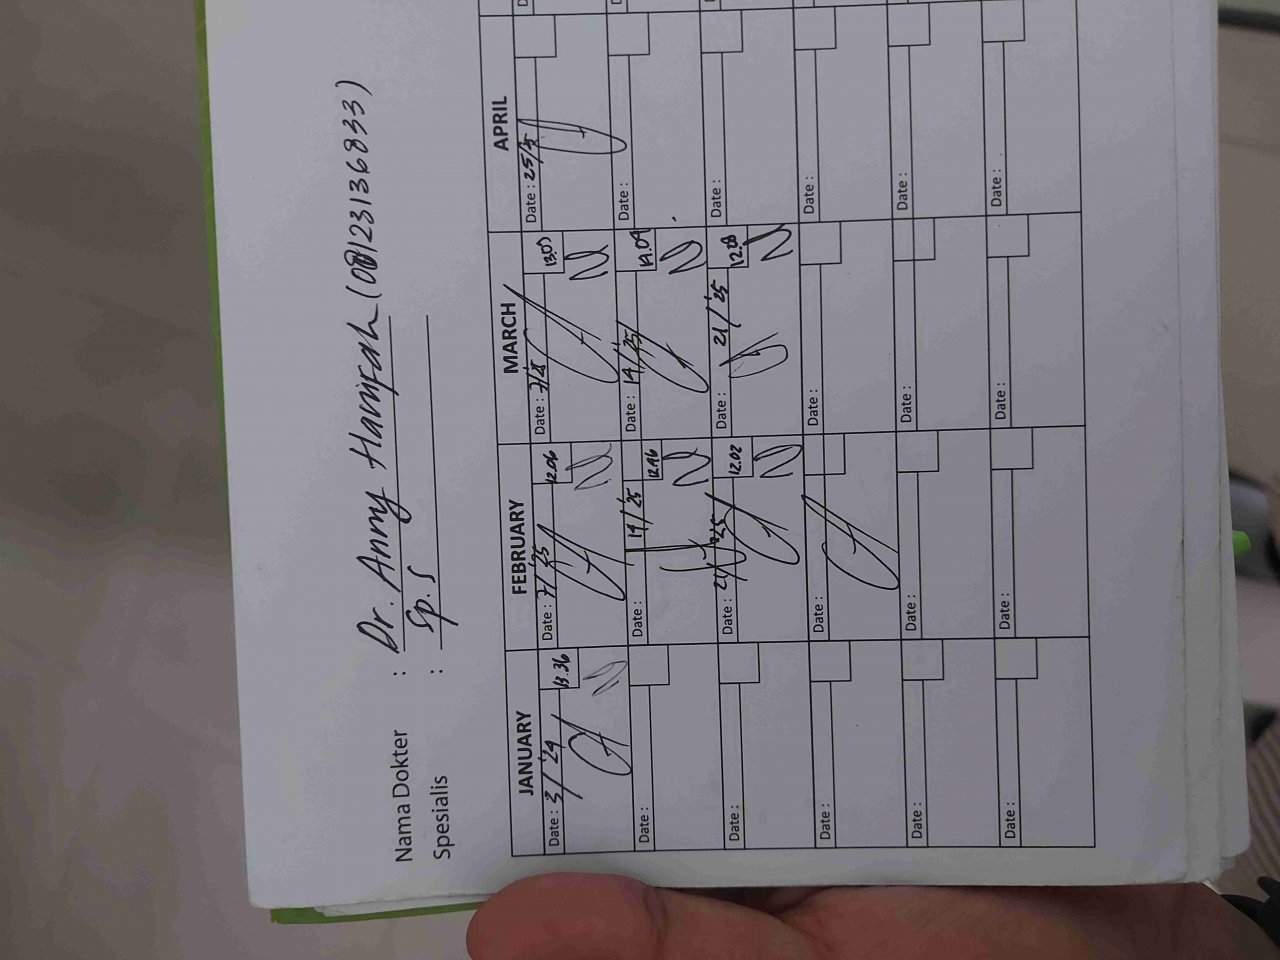 Nama Dokter : Dr. Anny Hanifah (08123136833)
Spesialis : Sp. S
JANUARY FEBRUARY MARCH APRIL
Date : 3/'24 13.36 Date : 7/'25 12.06 Date : 7/25 13.03 Date : 25/
Date : Date : 14/'25 12.16 Date : 14/'25 14.09 Date :
Date : Date : 21/'25 12.02 Date : 21/'25 12.08 Date :
Date : Date : Date : Date :
Date : Date : Date : Date :
Date : Date : Date : Date :